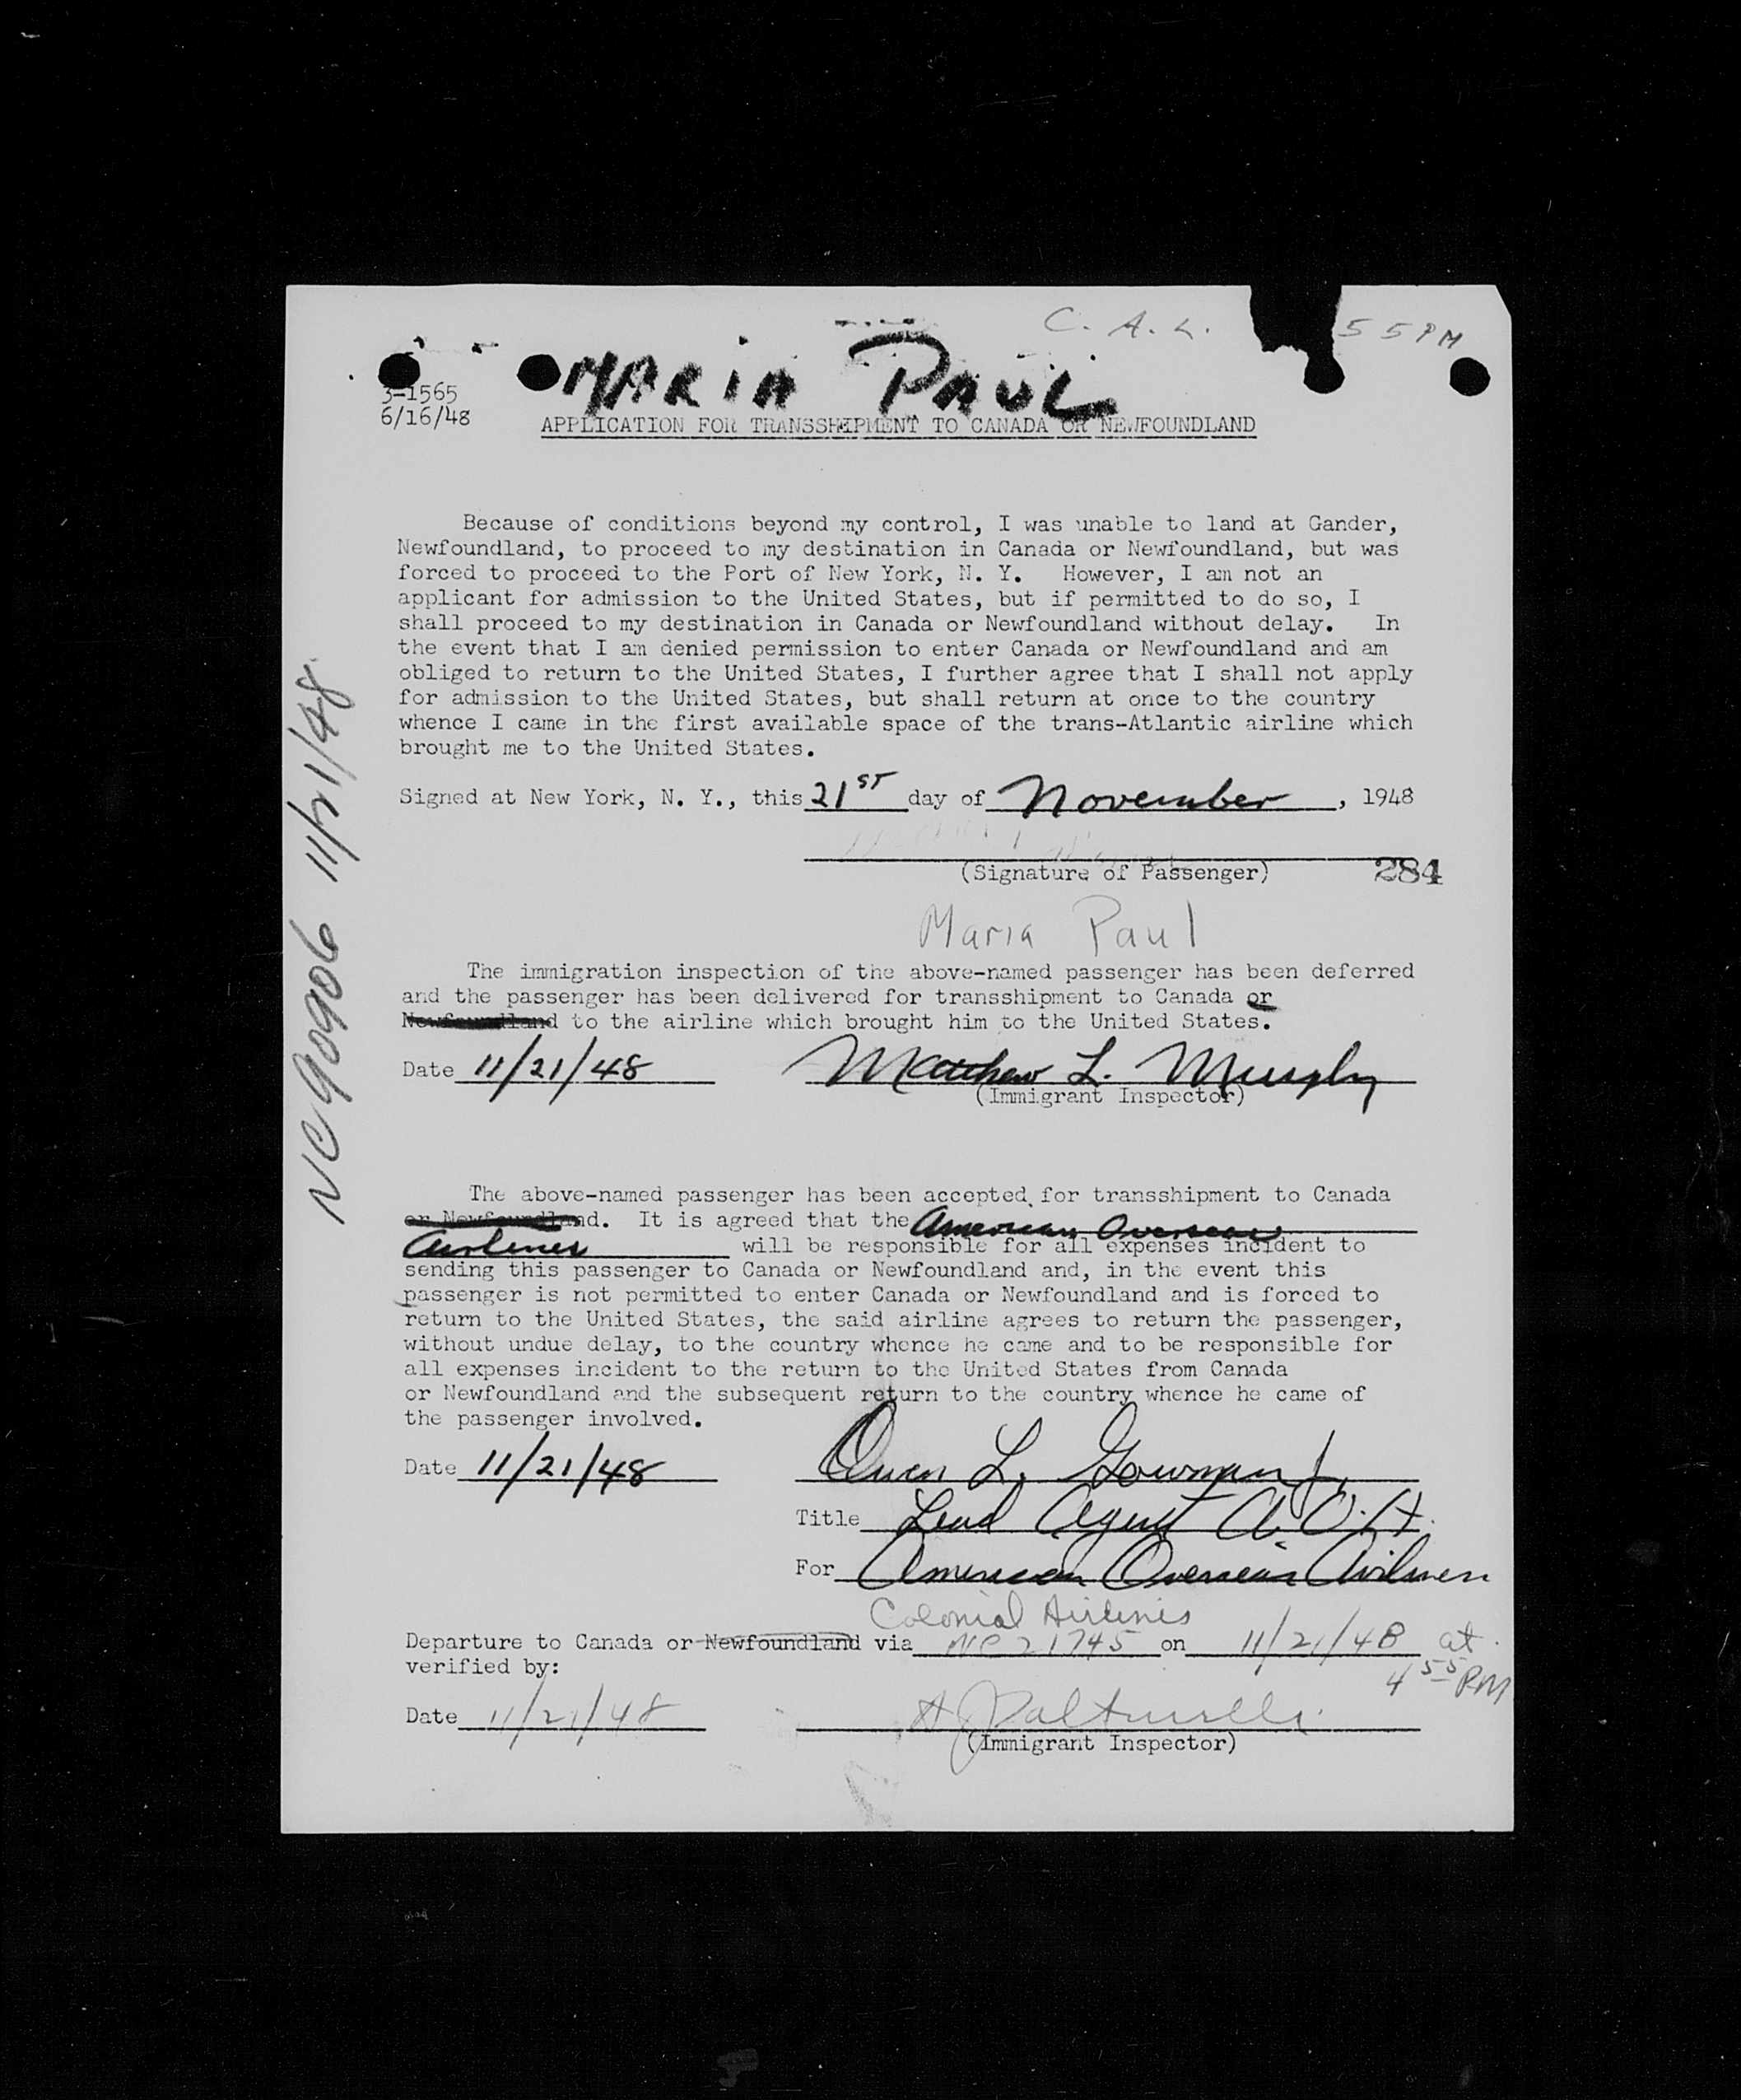 C. A. L. 55 PM
MARIA PAUL
3-1565
6/16/48
APPLICATION FOR TRANSSHIPMENT TO CANADA OR NEWFOUNDLAND
Because of conditions beyond my control, I was unable to land at Gander,
Newfoundland, to proceed to my destination in Canada or Newfoundland, but was
forced to proceed to the Port of New York, N. Y. However, I am not an
applicant for admission to the United States, but if permitted to do so, I
shall proceed to my destination in Canada or Newfoundland without delay. In
the event that I am denied permission to enter Canada or Newfoundland and am
obliged to return to the United States, I further agree that I shall not apply
for admission to the United States, but shall return at once to the country
whence I came in the first available space of the trans-Atlantic airline which
brought me to the United States.
Signed at New York, N. Y., this 21ST day of November, 1948
(Signature of Passenger) 284
Maria Paul
The immigration inspection of the above-named passenger has been deferred
and the passenger has been delivered for transshipment to Canada or
Newfoundland to the airline which brought him to the United States.
Date 11/21/48 Matthew L. Murphy
(Immigrant Inspector)
NC90906 11/21/48
The above-named passenger has been accepted for transshipment to Canada
or Newfoundland. It is agreed that the American Overseas
Airlines will be responsible for all expenses incident to
sending this passenger to Canada or Newfoundland and, in the event this
passenger is not permitted to enter Canada or Newfoundland and is forced to
return to the United States, the said airline agrees to return the passenger,
without undue delay, to the country whence he came and to be responsible for
all expenses incident to the return to the United States from Canada
or Newfoundland and the subsequent return to the country whence he came of
the passenger involved.
Date 11/21/48 Owen L. Gowman Jr.
Title Lead Agent A.O.A.
For American Overseas Airlines
Colonial Airlines
Departure to Canada or Newfoundland via NC 21745 on 11/21/48 at
verified by: 4 55 PM
Date 11/21/48
(Immigrant Inspector)